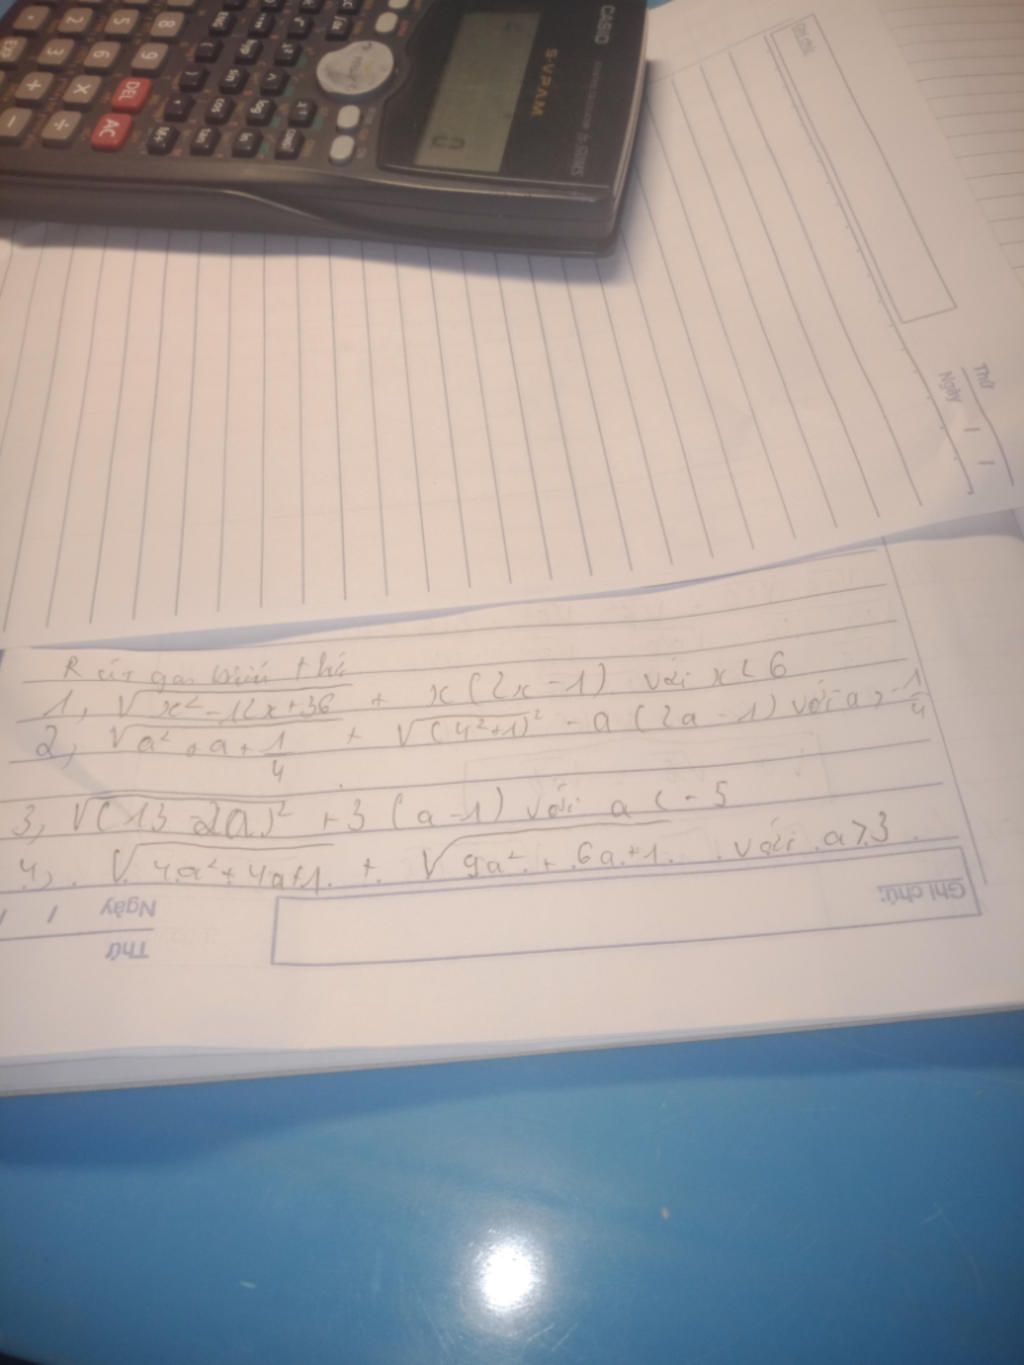 CASIO
S-V.P.A.M.
DEL
AC
Ghi chú:
Thứ
Ngày / /
Rút gọn biểu thức
1, √x² - 12x + 36 + x (2x - 1) với x < 6
2, √a² + a + 1/4 + √(4²+1)² - a (2a - 1) với a > -1/4
3, √(13 - 2a)² + 3 (a - 1) với a < -5
4, √4a² + 4a + 1 + √9a² + 6a + 1 với a > 3
Ghi chú:
Ngày / /
Thứ